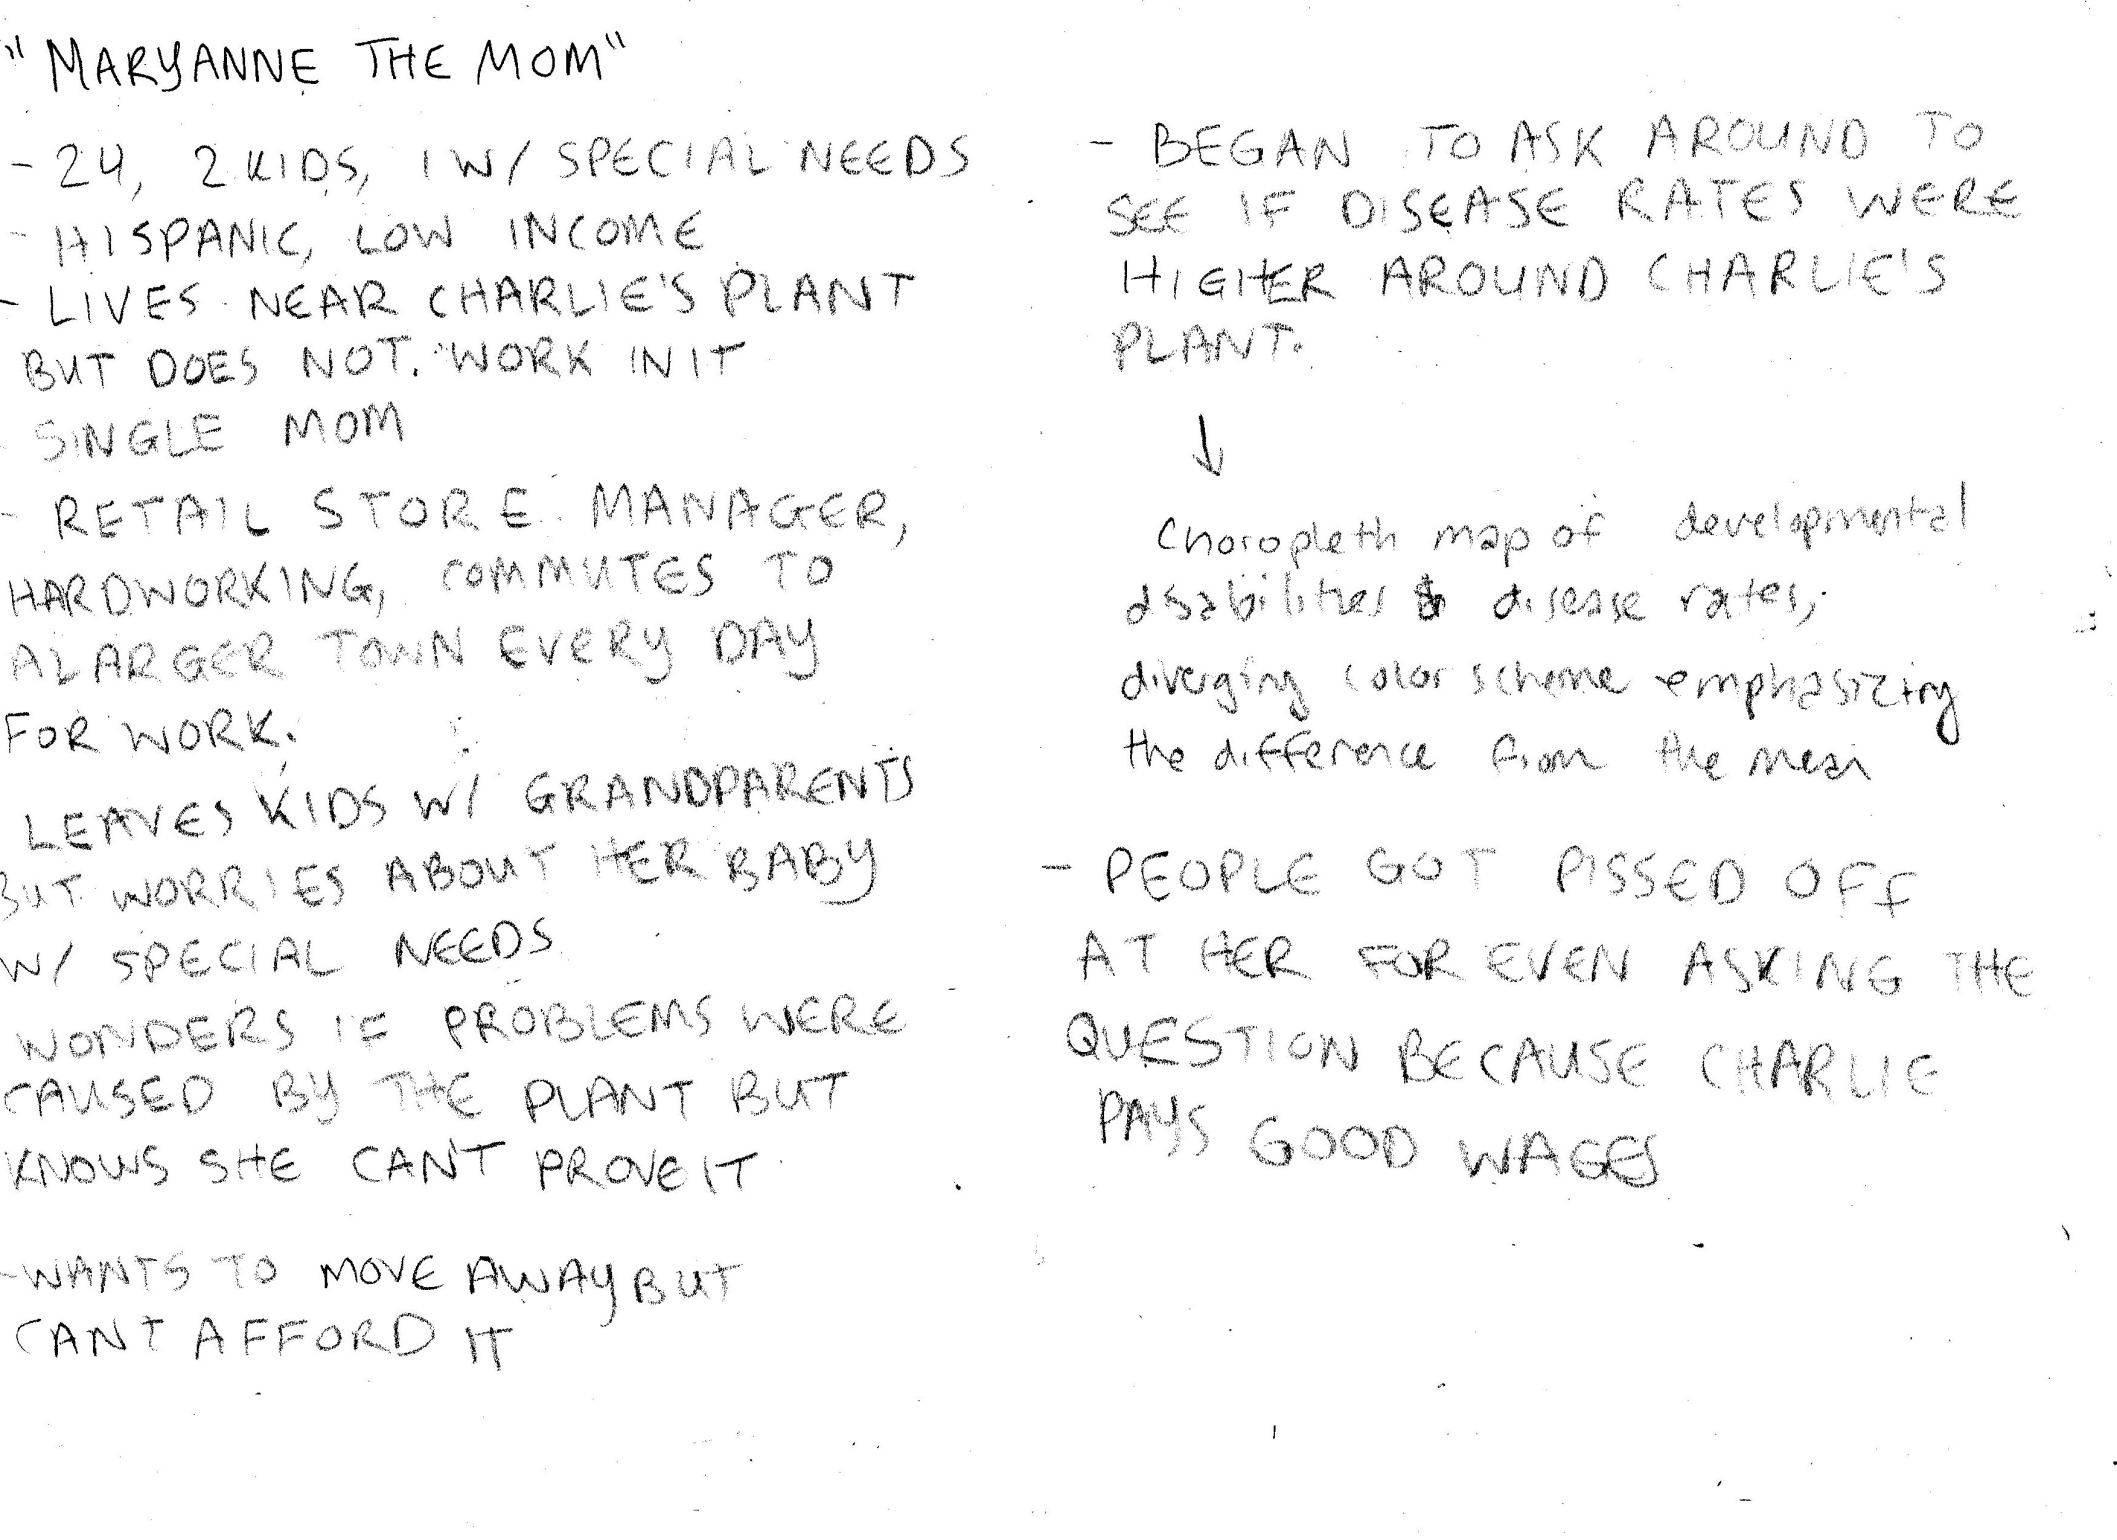 "MARYANNE THE MOM"
- 24, 2 KIDS, 1 W/ SPECIAL NEEDS
- HISPANIC, LOW INCOME
- LIVES NEAR CHARLIE'S PLANT
BUT DOES NOT. WORK IN IT
SINGLE MOM
- RETAIL STORE MANAGER,
HARDWORKING, COMMUTES TO
A LARGER TOWN EVERY DAY
FOR WORK.
LEAVES KIDS W/ GRANDPARENTS
BUT WORRIES ABOUT HER BABY
W/ SPECIAL NEEDS
WONDERS IF PROBLEMS WERE
CAUSED BY THE PLANT BUT
KNOWS SHE CAN'T PROVE IT
- WANTS TO MOVE AWAY BUT
CANT AFFORD IT
- BEGAN TO ASK AROUND TO
SEE IF DISEASE RATES WERE
HIGHER AROUND CHARLIE'S
PLANT.
↓
Choropleth map of developmental
disabilities & disease rates,
diverging color scheme emphasizing
the difference from the mean
- PEOPLE GOT PISSED OFF
AT HER FOR EVEN ASKING THE
QUESTION BECAUSE CHARLIE
PAYS GOOD WAGES